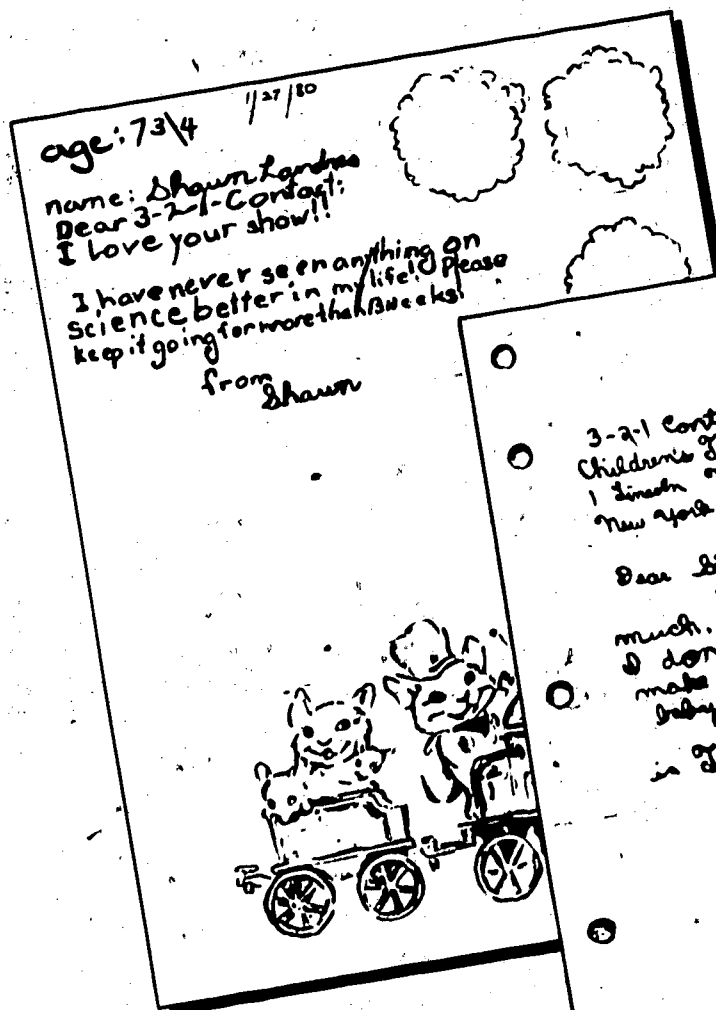 age: 7 3\4
1/27/80
name: Shawn Landres
Dear 3-2-1-Contact:
I Love your show!!
I have never seen anything on
science better in my life! Please
keep it going for more than 13 weeks!
from
Shawn
3-2-1 Cont
Children's T
1 Lincoln
New York
Dear Si
much.
I don
make
baby
is